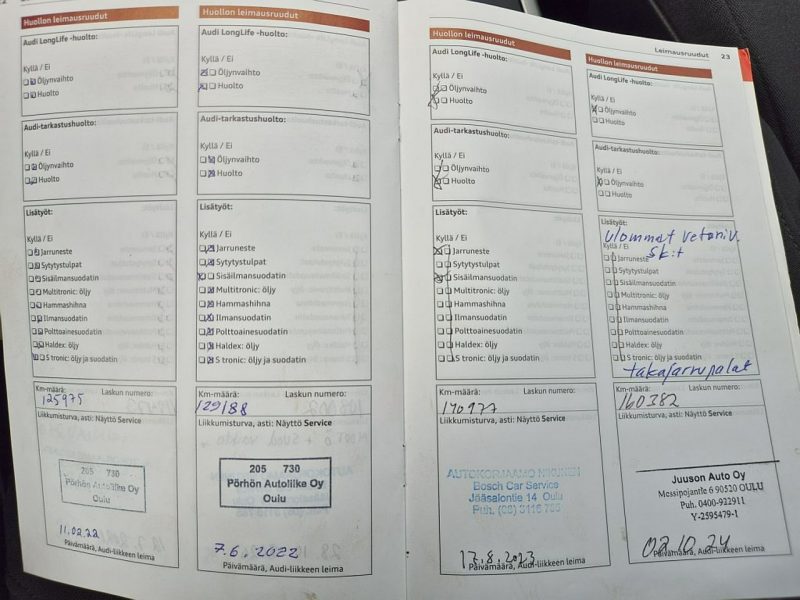 Huollon leimausruudut
Audi LongLife -huolto:
Kyllä / Ei
Öljynvaihto
Huolto
Audi-tarkastushuolto:
Kyllä / Ei
Öljynvaihto
Huolto
Lisätyöt:
Kyllä / Ei
Jarruneste
Sytytystulpat
Sisäilmansuodatin
Multitronic: öljy
Hammashihna
Ilmansuodatin
Polttoainesuodatin
Haldex: öljy
S tronic: öljy ja suodatin
Km-määrä: Laskun numero:
125975
Liikkumisturva, asti: Näyttö Service
205 730
Pörhön Autoliike Oy
Oulu
11.02.22
Päivämäärä, Audi-liikkeen leima
Huollon leimausruudut
Audi LongLife -huolto:
Kyllä / Ei
Öljynvaihto
Huolto
Audi-tarkastushuolto:
Kyllä / Ei
Öljynvaihto
Huolto
Lisätyöt:
Kyllä / Ei
Jarruneste
Sytytystulpat
Sisäilmansuodatin
Multitronic: öljy
Hammashihna
Ilmansuodatin
Polttoainesuodatin
Haldex: öljy
S tronic: öljy ja suodatin
Km-määrä: Laskun numero:
129188
Liikkumisturva, asti: Näyttö Service
205 730
Pörhön Autoliike Oy
Oulu
7.6.2022
Päivämäärä, Audi-liikkeen leima
Huollon leimausruudut
Audi LongLife -huolto:
Kyllä / Ei
Öljynvaihto
Huolto
Audi-tarkastushuolto:
Kyllä / Ei
Öljynvaihto
Huolto
Lisätyöt:
Kyllä / Ei
Jarruneste
Sytytystulpat
Sisäilmansuodatin
Multitronic: öljy
Hammashihna
Ilmansuodatin
Polttoainesuodatin
Haldex: öljy
S tronic: öljy ja suodatin
Km-määrä: Laskun numero:
140977
Liikkumisturva, asti: Näyttö Service
AUTOKORJAAMO
Bosch Car Service
Jääsalontie 14 Oulu
Puh. (08) 3116
17.8.2023
Päivämäärä, Audi-liikkeen leima
Leimausruudut 23
Huollon leimausruudut
Audi LongLife -huolto:
Kyllä / Ei
Öljynvaihto
Huolto
Audi-tarkastushuolto:
Kyllä / Ei
Öljynvaihto
Huolto
Lisätyöt:
ulommat vetoniv.
Kyllä / Ei
sk:t
Jarruneste
Sytytystulpat
Sisäilmansuodatin
Multitronic: öljy
Hammashihna
Ilmansuodatin
Polttoainesuodatin
Haldex: öljy
S tronic: öljy ja suodatin
takajarrupalat
Km-määrä: Laskun numero:
160382
Liikkumisturva, asti: Näyttö Service
Juuson Auto Oy
Messipojantie 6 90520 OULU
Puh. 0400-922911
Y-2595479-1
02.10.24
Päivämäärä, Audi-liikkeen leima